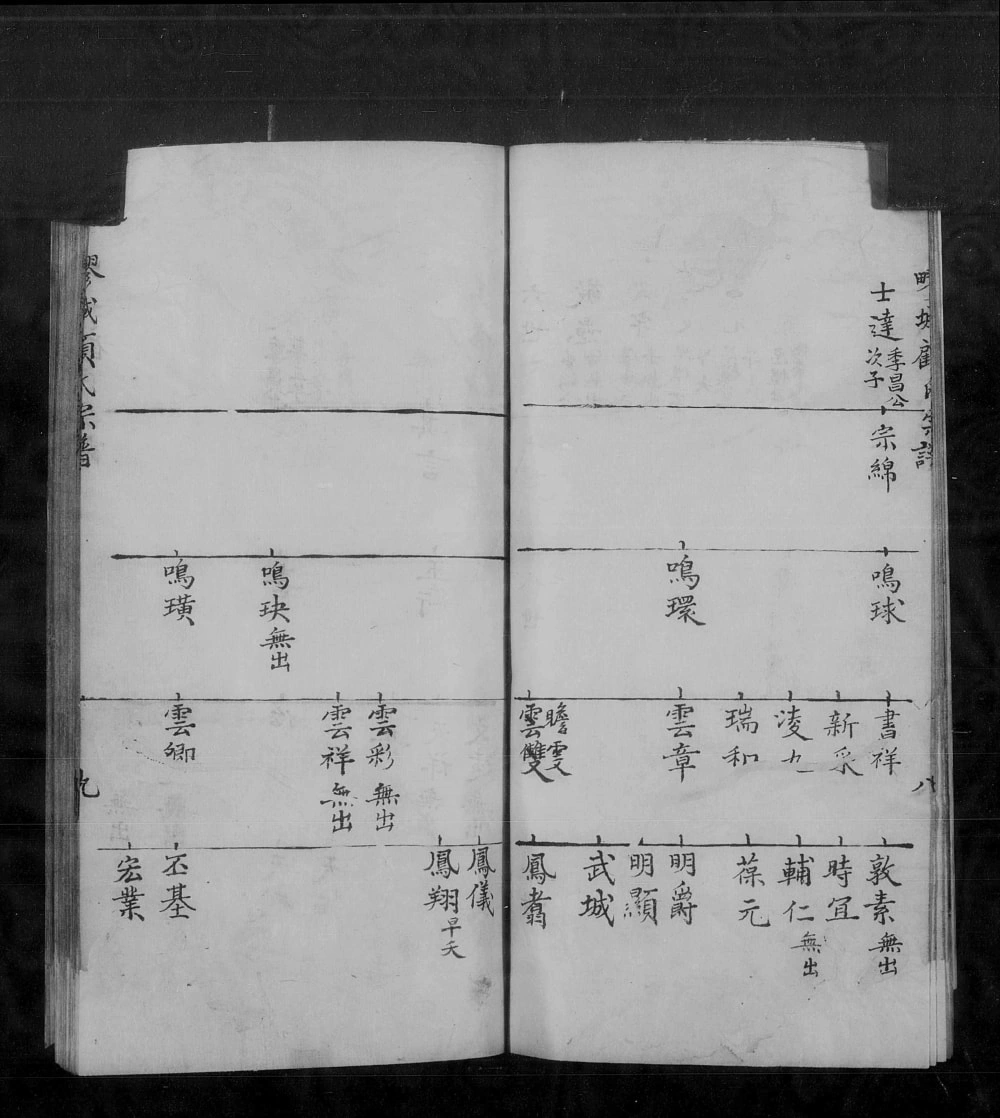 士達
季昌公
次子
宗綿
鳴球
鳴環
書祥
新采
凌九
瑞和
雲章
瞻雯
雲雙
敦素 無出
時宜
輔仁 無出
葆元
明爵
明顯
武城
鳳翥
八
鳴玦 無出
鳴璜
雲彩 無出
雲祥 無出
雲卿
鳳儀
鳳翔 早夭
丕基
宏業
九